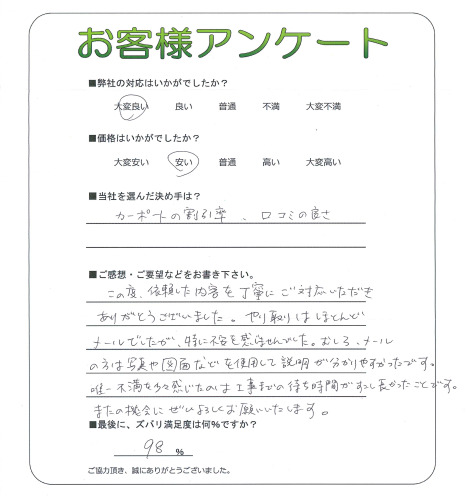 お客様アンケート
■弊社の対応はいかがでしたか？
大変良い 良い 普通 不満 大変不満
■価格はいかがでしたか？
大変安い 安い 普通 高い 大変高い
■当社を選んだ決め手は？
カーポートの割引率、口コミの良さ
■ご感想・ご要望などをお書き下さい。
この度、依頼した内容を丁寧にご対応いただき
ありがとうございました。やり取りはほとんど
メールでしたが、特に不容を感じませんでした。むしろ、メール
の方は写真や図面などを使用して説明が分かりやすかったです。
唯一不満を多々感じたのは工事までの待ち時間がすこし長かったことです。
またの機会にぜひよろしくお願いいたします。
■最後に、ズバリ満足度は何%ですか？
98 %
ご協力頂き、誠にありがとうございました。